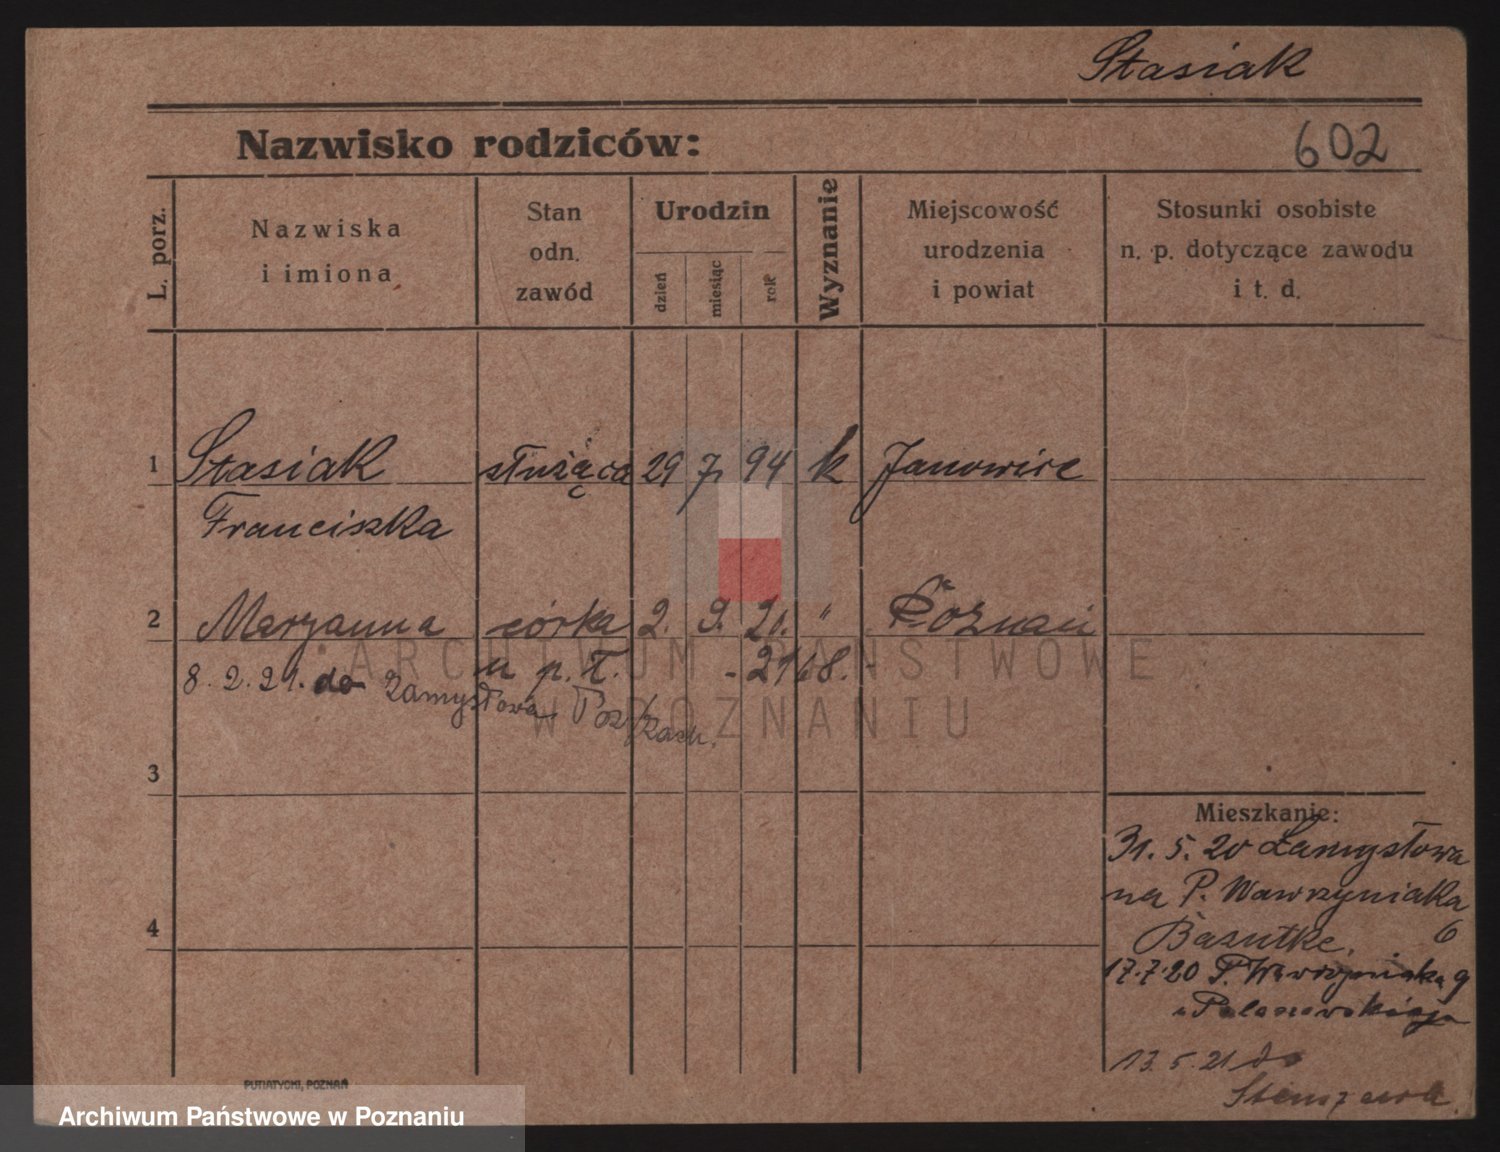 Stasiak
Nazwisko rodziców:
602
L. porz.
Nazwiska
i imiona
Stan
odn.
zawód
Urodzin
dzień
miesiąc
rok
Wyznanie
Miejscowość
urodzenia
i powiat
Stosunki osobiste
n. p. dotyczące zawodu
i t. d.
1 Stasiak służąca 29 7. 94 k Janowice
Franciszka
2 Maryanna córka 2. 9. 20. " Poznań
u p. T. - 2168. -
8. 2. 21. do Zamysłowa
3
4
Mieszkanie:
31. 5. 20 Zamysłowa
na P. Wawrzyniaka
6
17.7.20 P. Wawrzyniaka 9
13. 5. 21 do
Stenszewa
PUTIATYCKI, POZNAŃ
ARCHIWUM PAŃSTWOWE
W POZNANIU
Archiwum Państwowe w Poznaniu